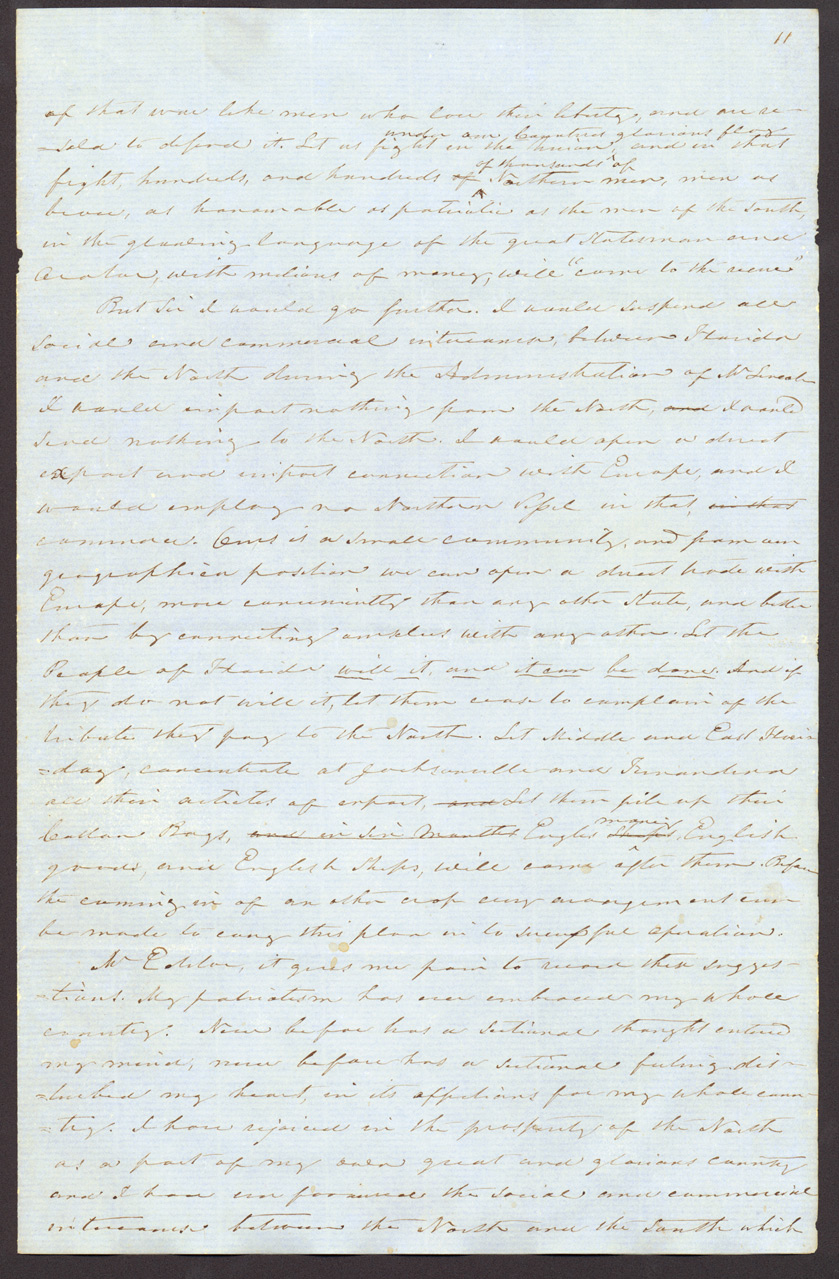 11
of that wrae like men who love their liberty, and are re-
=sold to defend it. Let us fight in the Union, under our Countries glorious flag and in that
fight, hundreds, and hundreds of thousands of Northern men, men as
brave, as honourable as patriotic as the men of the South,
in the glowing language of the great Statesman and
Orator, with milions of money, will "come to the rescue"
But Sir I would go further. I would suspend all
social and commercial intercourse, between Florida
and the North during the Administration of Mr Lincoln
I would import nothing from the North, and I would
send nothing to the North. I would open a direct
export and import connection with Europe, and I
would employ no Northern Vessel in that, in that
commerce. Ours is a small community, and from our
geographical position we can open a direct trade with
Europe, more conveniently than any other State, and better
than by connecting ourselves with any other. Let the
People of Florida will it, and it can be done. And if
they do not will it, let them cease to complain of the
tribute they pay to the North. Let Middle and East Flori
=day, concentrate at Jacksonville and Fernandina
all their articles of export, and Let them pile up their
Cotton Bags, and in Six Months English Ships money, English
goods, and English Ships, will come after them. Before
the coming in of an other crop every arrangement can
be made to carry this plan in to sucessful opperation.
Mr Editor, it gives me pain to record these sugges-
=tions. My patriotism has ever embraced my whole
country. Never before has a sectional thought entered
my mind, never before has a sectional feeling dis-
=turbed my heart, in its affections for my whole coun
=try. I have rejoiced in the prosperity of the North
as a part of my own great and glorious country
and I have ever favoured the social and commercial
intercourse between the North and the South which